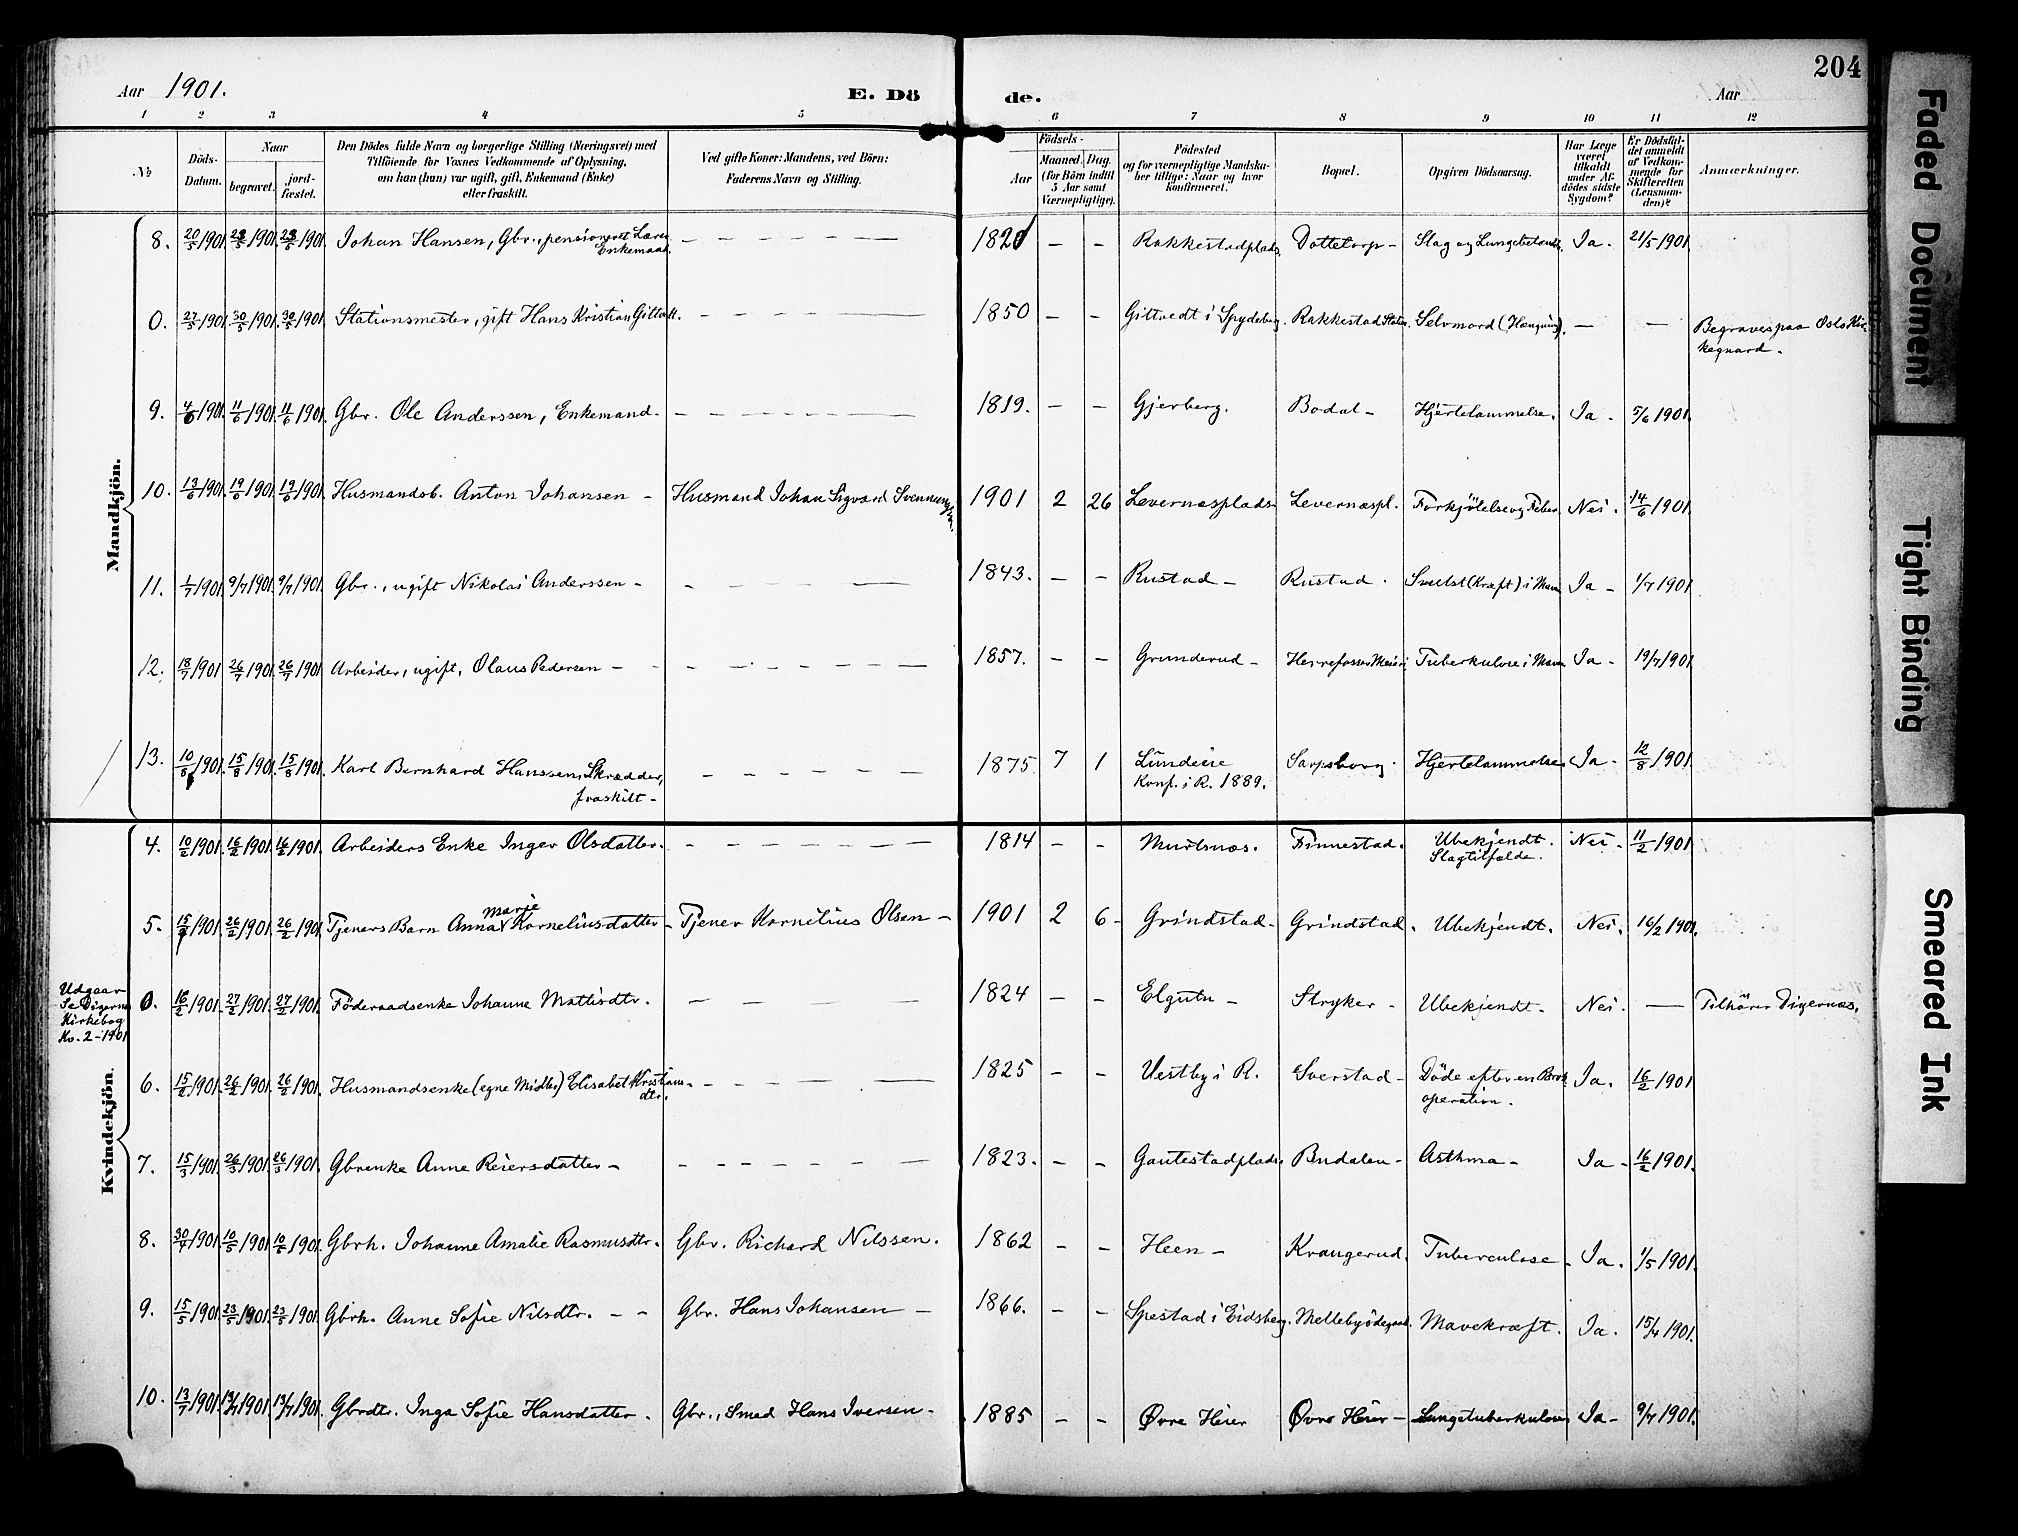 204
Aar 1901.
E. Dö de.
Aar
1 2 3 4 5 6 7 8 9 10 11 12
№
Döds-Datum.
Naar
begravet.
jord-fæstet.
Den Dödes fulde Navn og borgerlige Stilling (Næringsvei) med
Tilföiende for Voxnes Vedkommende af Oplysning,
om han (hun) var ugift, gift, Enkemand (Enke)
eller fraskilt.
Ved gifte Koner: Mandens, ved Börn:
Faderens Navn og Stilling.
Födsels-
Aar
Maaned. Dag.
(for Börn indtil
5 Aar samt
Værnepligtige).
Födested
og for værnepligtige Mandska-
ber tillige: Naar og hvor
konfirmeret.
Bopæl.
Opgiven Dödsaarsag.
Har Læge
været
tilkaldt
under Af-
dödes sidste
Sygdom?
Er Dödsfal-
det anmeldt
af Vedkom-
mende for
Skifteretten
(Lensman-
den)?
Anmærkninger.
Mandkjön.
8. 20/5 1901 28/5 1901 28/5 1901 Johan Hansen, Gbr., pensioneret Lærer Enkemand. 1820 - - Rakkestadplads. Dattetorp - Slag og Lungebetændt. Ja. 21/5 1901
0. 27/5 1901 30/5 1901 30/5 1901 Stationsmester, gift Hans Kristian Gittvedt. 1850 - - Gittvedt i Spydeberg. Rakkestad Station. Selvmord (Hængning). - - Begraves paa Oslo Kir-
kegaard.
9. 4/6 1901 11/6 1901 11/6 1901 Gbr. Ole Anderssen, Enkemand. 1819. - - Gjerberg. Bodal - Hjertelammelse. Ja. 5/6 1901.
10. 13/6 1901 19/6 1901 19/6 1901 Husmandsb. Anton Johansen - Husmand Johan Sigvard Svennungs. 1901 2 26 Levernæsplads Levernæspl. Forkjölelse og Feber Nei. 14/6 1901.
11. 1/7 1901 9/7 1901 9/7 1901 Gbr., ugift Nikolai Anderssen - 1843. - - Rustad - Rustad. Svulst (Kræft) i Maven Ja - 1/7 1901
12. 18/7 1901 26/7 1901 26/7 1901 Arbeider, ugift, Olaus Pedersen - 1857. - - Grunderud - Herrefosser Meieri Tuberkulose i Maven Ja - 19/7 1901.
13. 10/8 1901. 15/8 1901. 15/8 1901. Karl Bernhard Hanssen, Skrædder,
fraskilt - 1875 7 1 Lundeie
Konf. i R. 1889. Sarpsborg. Hjertelammelse Ja - 12/8 1901.
Kvindekjön.
4. 10/2 1901. 16/2 1901. 16/2 1901. Arbeiders Enke Inger Olsdatter. 1814 - - Murtnæs. Finnestad. Ubekjendt.
Slagtilfælde. Nei. 11/2 1901
5. 15/ 1901. 26/2 1901. 26/2 1901 Tjeners Barn Anna Marie Korneliusdatter - Tjener Kornelius Olsen - 1901 2 6 - Grindstad - Grindstad. Ubekjendt. Nei. 16/2 1901.
Udgaar
Se Digernæs
Kirkebog
No. 2 - 1901
0. 16/2 1901. 27/2 1901. 27/2 1901. Föderaadsenke Johanne Mattisdtr. 1824 - - Elgutn - Stryker - Ubekjendt - Nei. - Tilhörer Digernæs.
6. 15/2 1901. 26/2 1901. 26/2 1901. Husmandsenke (egne Midler) Elisabet Kristians-
dtr. 1825 - - Vestby i R. Sverstad - Döde efter en Brok
operation. Ja. 16/2 1901
7. 15/3 1901. 26/3 1901. 26/3 1901. Gbrenke Anne Reiersdatter - 1823. - - Gautestadplads. Budalen - Asthma - Ja - 16/2 1901.
8. 30/4 1901. 10/5 1901. 10/5 1901. Gbrh. Johanne Amalie Rasmusdtr. Gbr. Richard Nilssen. 1862 - - Heen - Krangerud. Tuberculose - Ja. 1/5 1901.
9. 15/5 1901. 23/5 1901. 23/5 1901. Gbrh. Anne Sofie Nilsdtr. - - Gbr. Hans Johansen - 1866. - - Spestad i Eidsberg. Mellebyödegaard. Mavekræft. Ja. 15/4 1901.
10. 13/7 1901. 13/7 1901. 13/7 1901. Gbrdtr. Inga Sofie Hansdatter. Gbr., Smed Hans Iversen - 1885 - - Øvre Heier Øvre Heier - Lungetuberkulose Ja - 9/7 1901.
Faded Document
Tight Binding
Smeared Ink